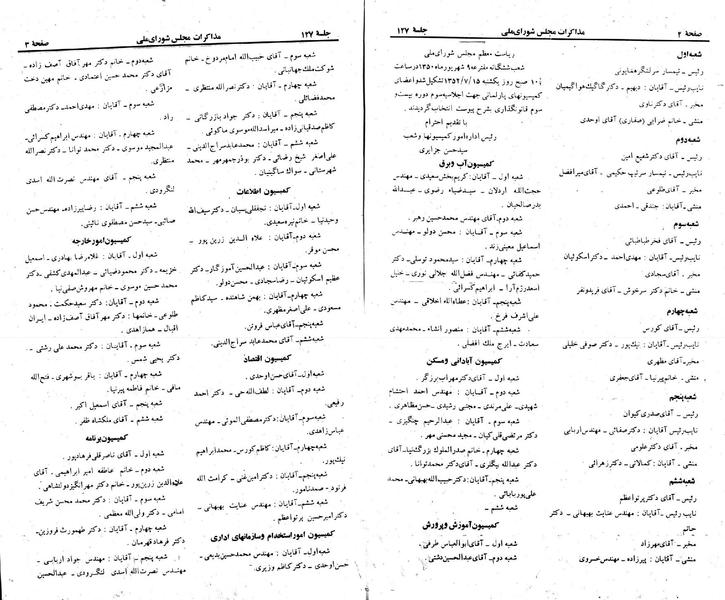 صفحهٔ ۲
مذاکرات مجلس شورای‌ملی
جلسهٔ ۱۲۷
شعبه‌اول
رئیس ـ تیمسار سرلشگرهمایونی
نایب‌رئیس ـ آقایان : دیهیم ـ دکترگاگیک‌هواگیمیان
مخبر ـ آقای دکترناوی
منشی ـ خانم ضرابی (صفاری) آقای اوحدی
شعبه‌دوم
رئیس ـ آقای دکترشفیع امین
نایب‌رئیس ـ تیمسار سرتیپ حکیمی ـ آقای‌میرافضل
مخبر ـ آقای‌طلوعی
منشی‌ـ آقایان : جندقی ـ احمدی
شعبه‌سوم
رئیس ـ آقای فخرطباطبائی
نایب‌رئیس ـ آقایان : مهدی‌احمد ـ دکتراسکوئیان
مخبر ـ آقای‌سجادی
منشی ـ خانم دکتر سرخوش ـ آقای فریدونفر
شعبه‌چهارم
رئیس ـ آقای کورس
نایب‌رئیس‌ـ آقایان : نیک‌پور ـ دکتر صوفی خلیلی
مخبرـ آقای مطهری
منشی ـ خانم‌پیرنیا ـ آقای‌جعفری
شعبه‌پنجم
رئیس ـ آقای‌صدری‌کیوان
نایب‌رئیس ـ آقایان : دکترصفائی ـ مهندس‌اربابی
مخبر ـ آقای دکترعلومی
منشی ـ آقایان: کمالاتی ـ دکترزهرائی
شعبه‌ششم
رئیس ـ آقای‌پرتواعظم
نایب رئیس ـ آقایان : مهندس عنایت بهبهانی ـ دکتر
حاتم
مخبر ـ آقای‌مهرزاد
منشی ـ آقایان : پیرزاده ـ مهندس‌خسروی
ریاست معظم مجلس شورای‌ملی
شعب‌ششگانه مفتره۹ شهریورماه ۱۳۵۰درساعت
۱۰ صبح روز یکشنبه ۱۳۵۲/۷/۱۵ تشکیل‌شدواعضای
کمیسیونهای پارلمانی جهت اجلاسیه‌سوم دوره بیست‌و
سوم قانونگذاری بشرح پیوست انتخاب‌گردیدند .
با تقدیم احترام
رئیس اداره‌امورکمیسیونها وشعب
سیدحسن جزایری
کمیسیون آب وبرق
شعبه اول ـ آقایان : کریم‌بخش‌سعیدی ـ مهندس
حجت‌الله اردلان ـ سیدضیاء رضوی ـ عبدالله
بدرصالحیان .
شعبه‌دوم‌ـ آقای مهندس محمدحسین رهبر .
شعبه‌سوم ـ آقایان : محسن دولو ـ مهندس
اسماعیل معینی‌زند .
شعبه‌چهارم ـ آقایان : سیدمحمود توسلی ـ دکتر
حمیدکفائی ـ مهندس فضل‌الله جلالی نوری ـ خلیل
اسعدرزم‌آرا ـ ابراهیم‌کسرائی .
شعبه‌پنجم ـ آقایان : عطاءالله اخلاقی ـ مهندس
علی‌اشرف فرخ .
شعبه‌ششم ـ آقایان : منصور انشاء ـ محمدمهدی
سعادت ـ ایرج ملک افضلی .
کمیسیون آبادانی ومسکن
شعبه اول ـ آقای‌دکترمهراب‌برزگر .
شعبه دوم ـ آقایان : مهندس احمد احتشام
شهیدی ـ علی‌مرندی ـ مجتبی رشیدی ـ حسن‌مظاهری .
شعبه سوم ـ آقایان : عبدالرحیم چنگیزی ـ
دکتر مرتضی‌قلی‌کیان ـ مجید محسنی مهر .
شعبه‌چهارم ـ خانم صدرالملوک بزرگ‌نیاـ آقای
دکتر عبدالله بیگلری ـ آقای‌دکترمحمدتوانا .
شعبه‌پنجم ـ آقایان : دکترحبیب‌الله‌بهبهانی‌ـ محمد
علی‌پوربابائی .
شعبه ششم ـ
کمیسیون‌آموزش وپرورش
شعبه اول ـ آقای‌ابوالعباس طرفی .
شعبه دوم ـ آقای‌عبدالحسین‌دشتی .
جلسهٔ ۱۲۷
مذاکرات مجلس شورای‌ملی
صفحهٔ ۳
شعبه سوم ـ آقای حبیب‌الله امام‌مردوخ ـ خانم
شوکت‌ملک‌جهانبانی .
شعبه چهارم ـ آقایان : دکترنصرالله منتظری ـ
محمدفضائلی .
شعبه پنجم ـ آقایان : دکتر جواد بازرگانی ـ
کاظم‌صدقیانی‌زاده ـ میراسدالله‌موسوی ماکوئی .
شعبه ششم ـ آقایان : محمدعابدسراج‌الدینی ـ
علی‌اصغر شیخ رضائی ـ دکتر بوذرجمهرمهر ـ محمد
شهرستانی ـ سواک ساگینیان .
کمیسیون اطلاعات
شعبه اول ـ آقایان : نجفقلی‌پسیان ـ دکترسیف‌الله
وحیدنیا ـ خانم‌نیره‌سعیدی .
شعبه دوم ـ آقایان : علاءالدین زرین پور ـ
محسن موقر .
شعبه‌سوم ـ آقایان : عبدالحسین آموزگارـ دکتر
عظیم اسکوئیان ـ رضاسجادی ـ محسن‌دولو .
شعبه‌چهارم ـ آقایان : بهمن شاهنده ـ سیدکاظم
مسعودی ـ علی‌اصغرمظهری .
شعبه‌پنجم‌ـ آقای‌عباس فروتن.
شعبه‌ششم ـ آقای‌محمدعابد سراج‌الدینی.
کمیسیون اقتصاد
شعبه اول‌ـ آقای‌حسن‌اوحدی .
شعبه دوم ـ آقایان : لطف‌الله‌حی ـ دکتر احمد
رفیعی .
شعبه‌سوم ـ آقایان:دکترمصطفی‌الموتی ـ مهندس
عباس‌زاهدی .
شعبه‌چهارم‌ـ آقایان:کاظم‌کورس ـ محمدابراهیم
نیک‌پور .
شعبه‌پنجم‌ـ آقایان : دکترامین‌غنی ـ کرامت الله
فرنود ـ صمدنامور .
شعبه‌ششم ـ آقایان : مهندس عنایت بهبهانی ـ
دکترامیرحسین پرتواعظم .
کمیسیون اموراستخدام وسازمانهای اداری
شعبه‌اول‌ـ آقایان : مهندس محمدحسین‌بدیعی ـ
حسن‌اوحدی ـ دکتر کاظم وزیری .
شعبه‌دوم ـ خانم دکتر مهر آفاق آصف زاده ـ
آقای دکتر محمد حسین اعتمادی ـ خانم مهین دخت
مزارعی .
شعبه‌سوم ـ آقایان : مهدی‌احمدـ دکترمصطفی
راد .
شعبه چهارم ـ آقایان : مهندس ابراهیم کسرائی‌ـ
عبدالمجید موسوی ـ دکتر محمد توانا ـ دکترنصرالله
منتظری .
شعبه پنجم ـ آقای مهندس نصرت‌الله اسدی
لنگرودی .
شعبه ششم ـ آقایان : رضاپیرزاده‌ـ مهندس‌حسن
صائبی‌ـ سیدحسن مصطفوی نائینی .
کمیسیون‌امورخارجه
شعبه اول ـ آقایان : غلامرضا بهادری ـ اسمعیل
خزیمه ـ دکتر محمودضیائی ـ عبدالمهدی‌کشفی ـ دکتر
محمد حسین موسوی ـ خانم مهروش‌صفی‌نیا .
شعبه دوم ـ آقایان: دکتر سعیدحکمت ـ محمود
طلوعی ـ خانمها : دکتر مهر آفاق آصف زاده ـ ایران
اقبال ـ همازاهدی .
شعبه سوم ـ آقایان : دکتر محمد علی رشتی ـ
دکتر یحیی شمس .
شعبه چهارم ـ آقایان : باقر بوشهری ـ فتح‌الله
مافی ـ خانم فاطمه پیرنیا .
شعبه پنجم ـ آقای اسمعیل اکبر .
شعبه‌ششم ـ آقای ملکشاه ظفر .
کمیسیون‌برنامه
شعبه اول ـ آقای ناصرقلی‌فرهادپور .
شعبه دوم ـ خانم عاطفه امیر ابراهیمی ـ آقای
علاءالدین زرین‌پور ـ خانم دکتر مهرانگیزدولتشاهی .
شعبه سوم ـ آقایان : دکتر محمد محسن شریف
امامی ـ دکتر ولی‌الله معظمی .
شعبه چهارم ـ آقایان : دکتر طهمورث فروزین‌ـ
دکتر فرهاد قهرمان .
شعبه پنجم ـ آقایان : مهندس جواد اربابی ـ
مهندس نصرت‌الله اسدی لنگرودی ـ عبدالحسین